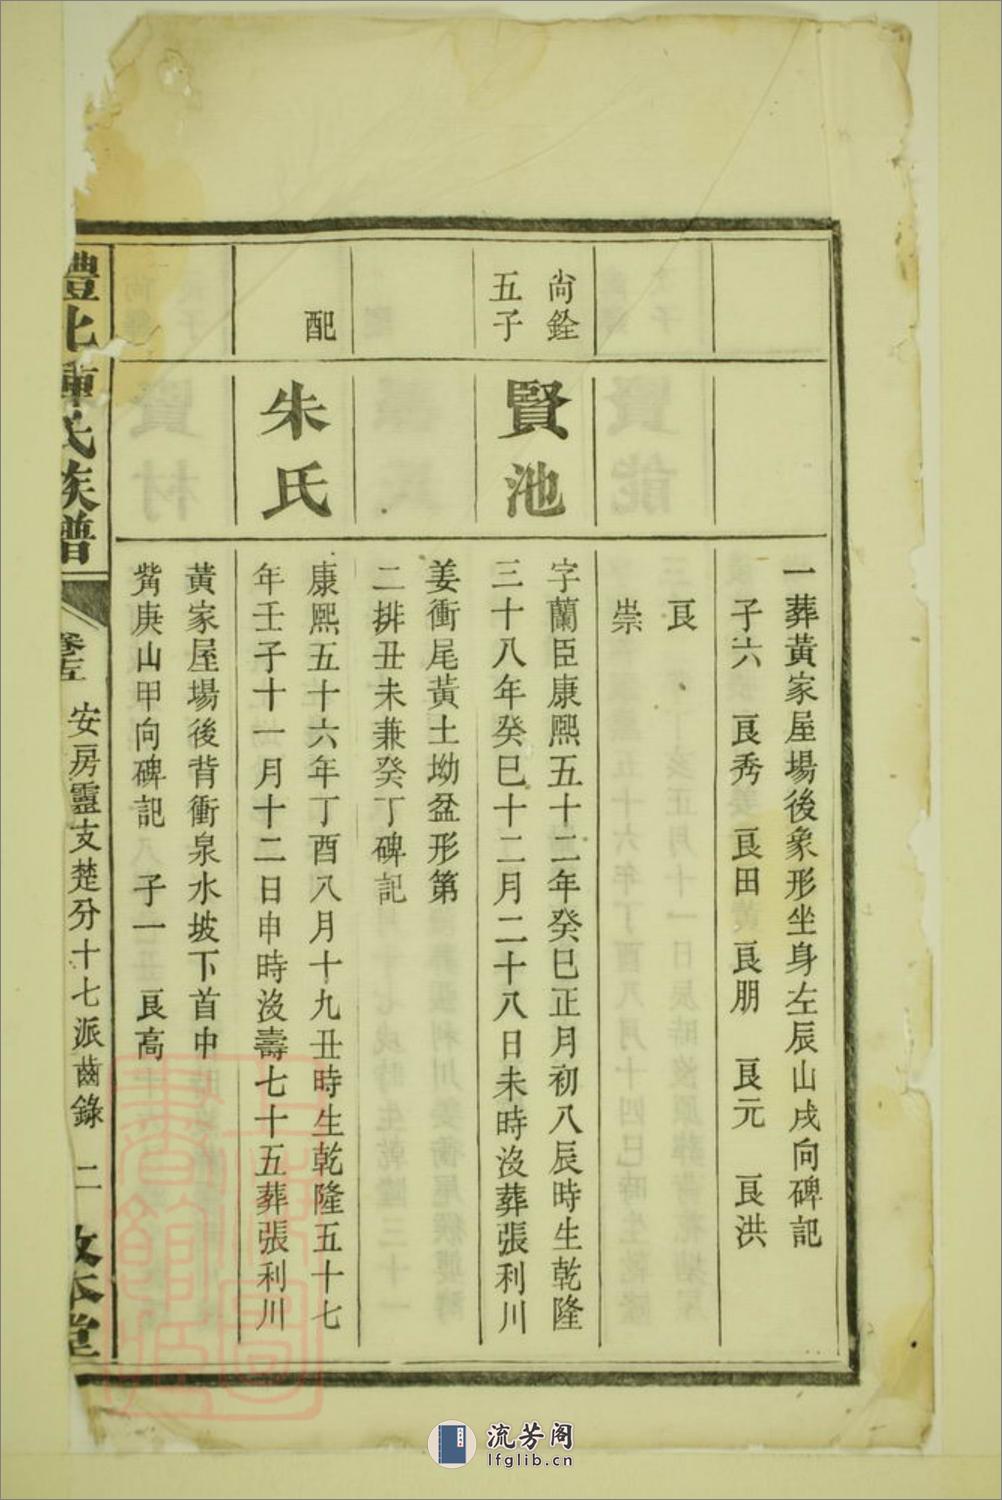 一葬黃家屋場後象形坐身左辰山戌向碑記
子六 良秀 良田 良朋 良元 良洪
良
崇
尚銓
五子
賢池
字蘭臣康熙五十二年癸巳正月初八辰時生乾隆
三十八年癸巳十二月二十八日未時沒葬張利川
姜衝尾黃土坳盆形第
二排丑未兼癸丁碑記
配
朱氏
康熙五十六年丁酉八月十九丑時生乾隆五十七
年壬子十一月十二日申時沒壽七十五葬張利川
黃家屋場後背衝泉水坡下首中
觜庚山甲向碑記 子一 良高
北 氏族譜
卷五 安房靈支楚分十七派齒錄 二 本堂
流芳阁
lfglib.cn